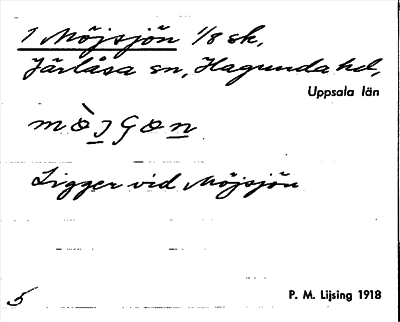 1 Möjsjön 1/8 sk,
Järlåsa sn, Hagunda hd,
Uppsala län
mö̀jʃɵn
Ligger vid Möjsjön
5 P. M. Lijsing 1918